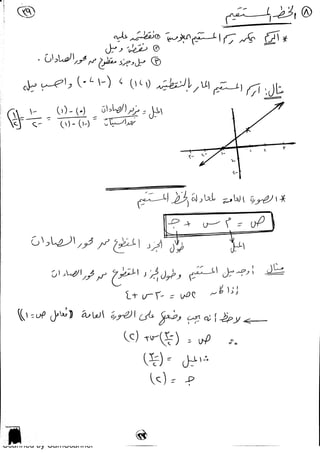 ٨ الخط المستقيم
* يمكن رسم المستقيم بمعلومية ① نقطتين عليه
② نقطة وميل
③ ميل وجزء مقطوع من محور الصادات
مثال: ارسم المستقيم المار بالنقطتين (١،١) ، (-١،٠) واحسب ميله
الميل = فرق الصادات / فرق السينات = (٠) - (١) / (-١) - (١) = -١ / -٢ = ١/٢
* الصورة العامة لمعادلة الخط المستقيم
ص = م س + جـ
الميل طول الجزء المقطوع من محور الصادات
مثال أوجد ميل المستقيم وطول الجزء المقطوع من محور الصادات
إذا كان ٢ص = -٣س + ٤
لاحظ أنه يجب وضعها على الصورة العامة (معامل ص = ١)
∴ ص = (-٣/٢) س + (٢)
∴ الميل = (-٣/٢)
جـ = (٢)
Scanned by CamScanner